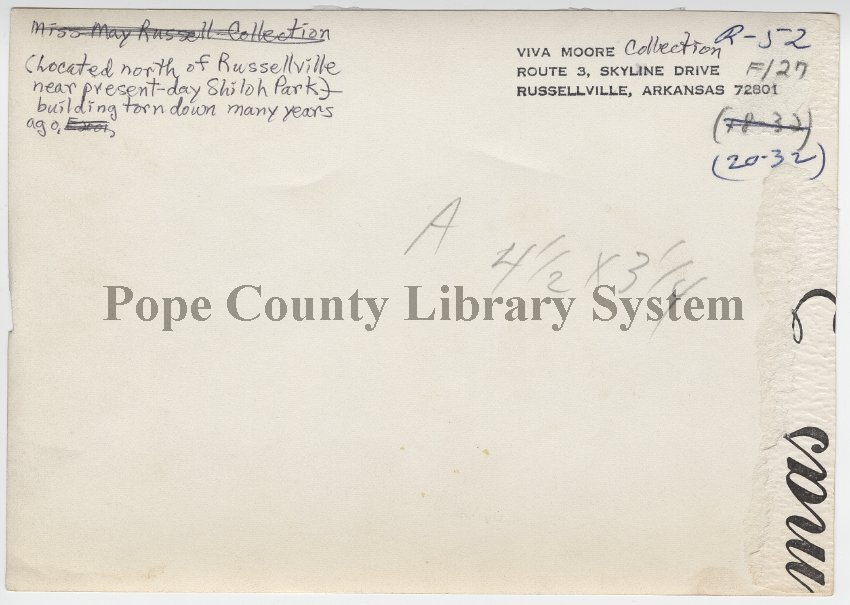 Miss May Russell Collection
(Located north of Russellville
near present-day Shiloh Park)
building torn down many years
ago,
VIVA MOORE Collection
ROUTE 3, SKYLINE DRIVE
RUSSELLVILLE, ARKANSAS 72801
R-52
F/27
(78-32)
(20-32)
A
4 1/2 X 3 1/4
Pope County Library System